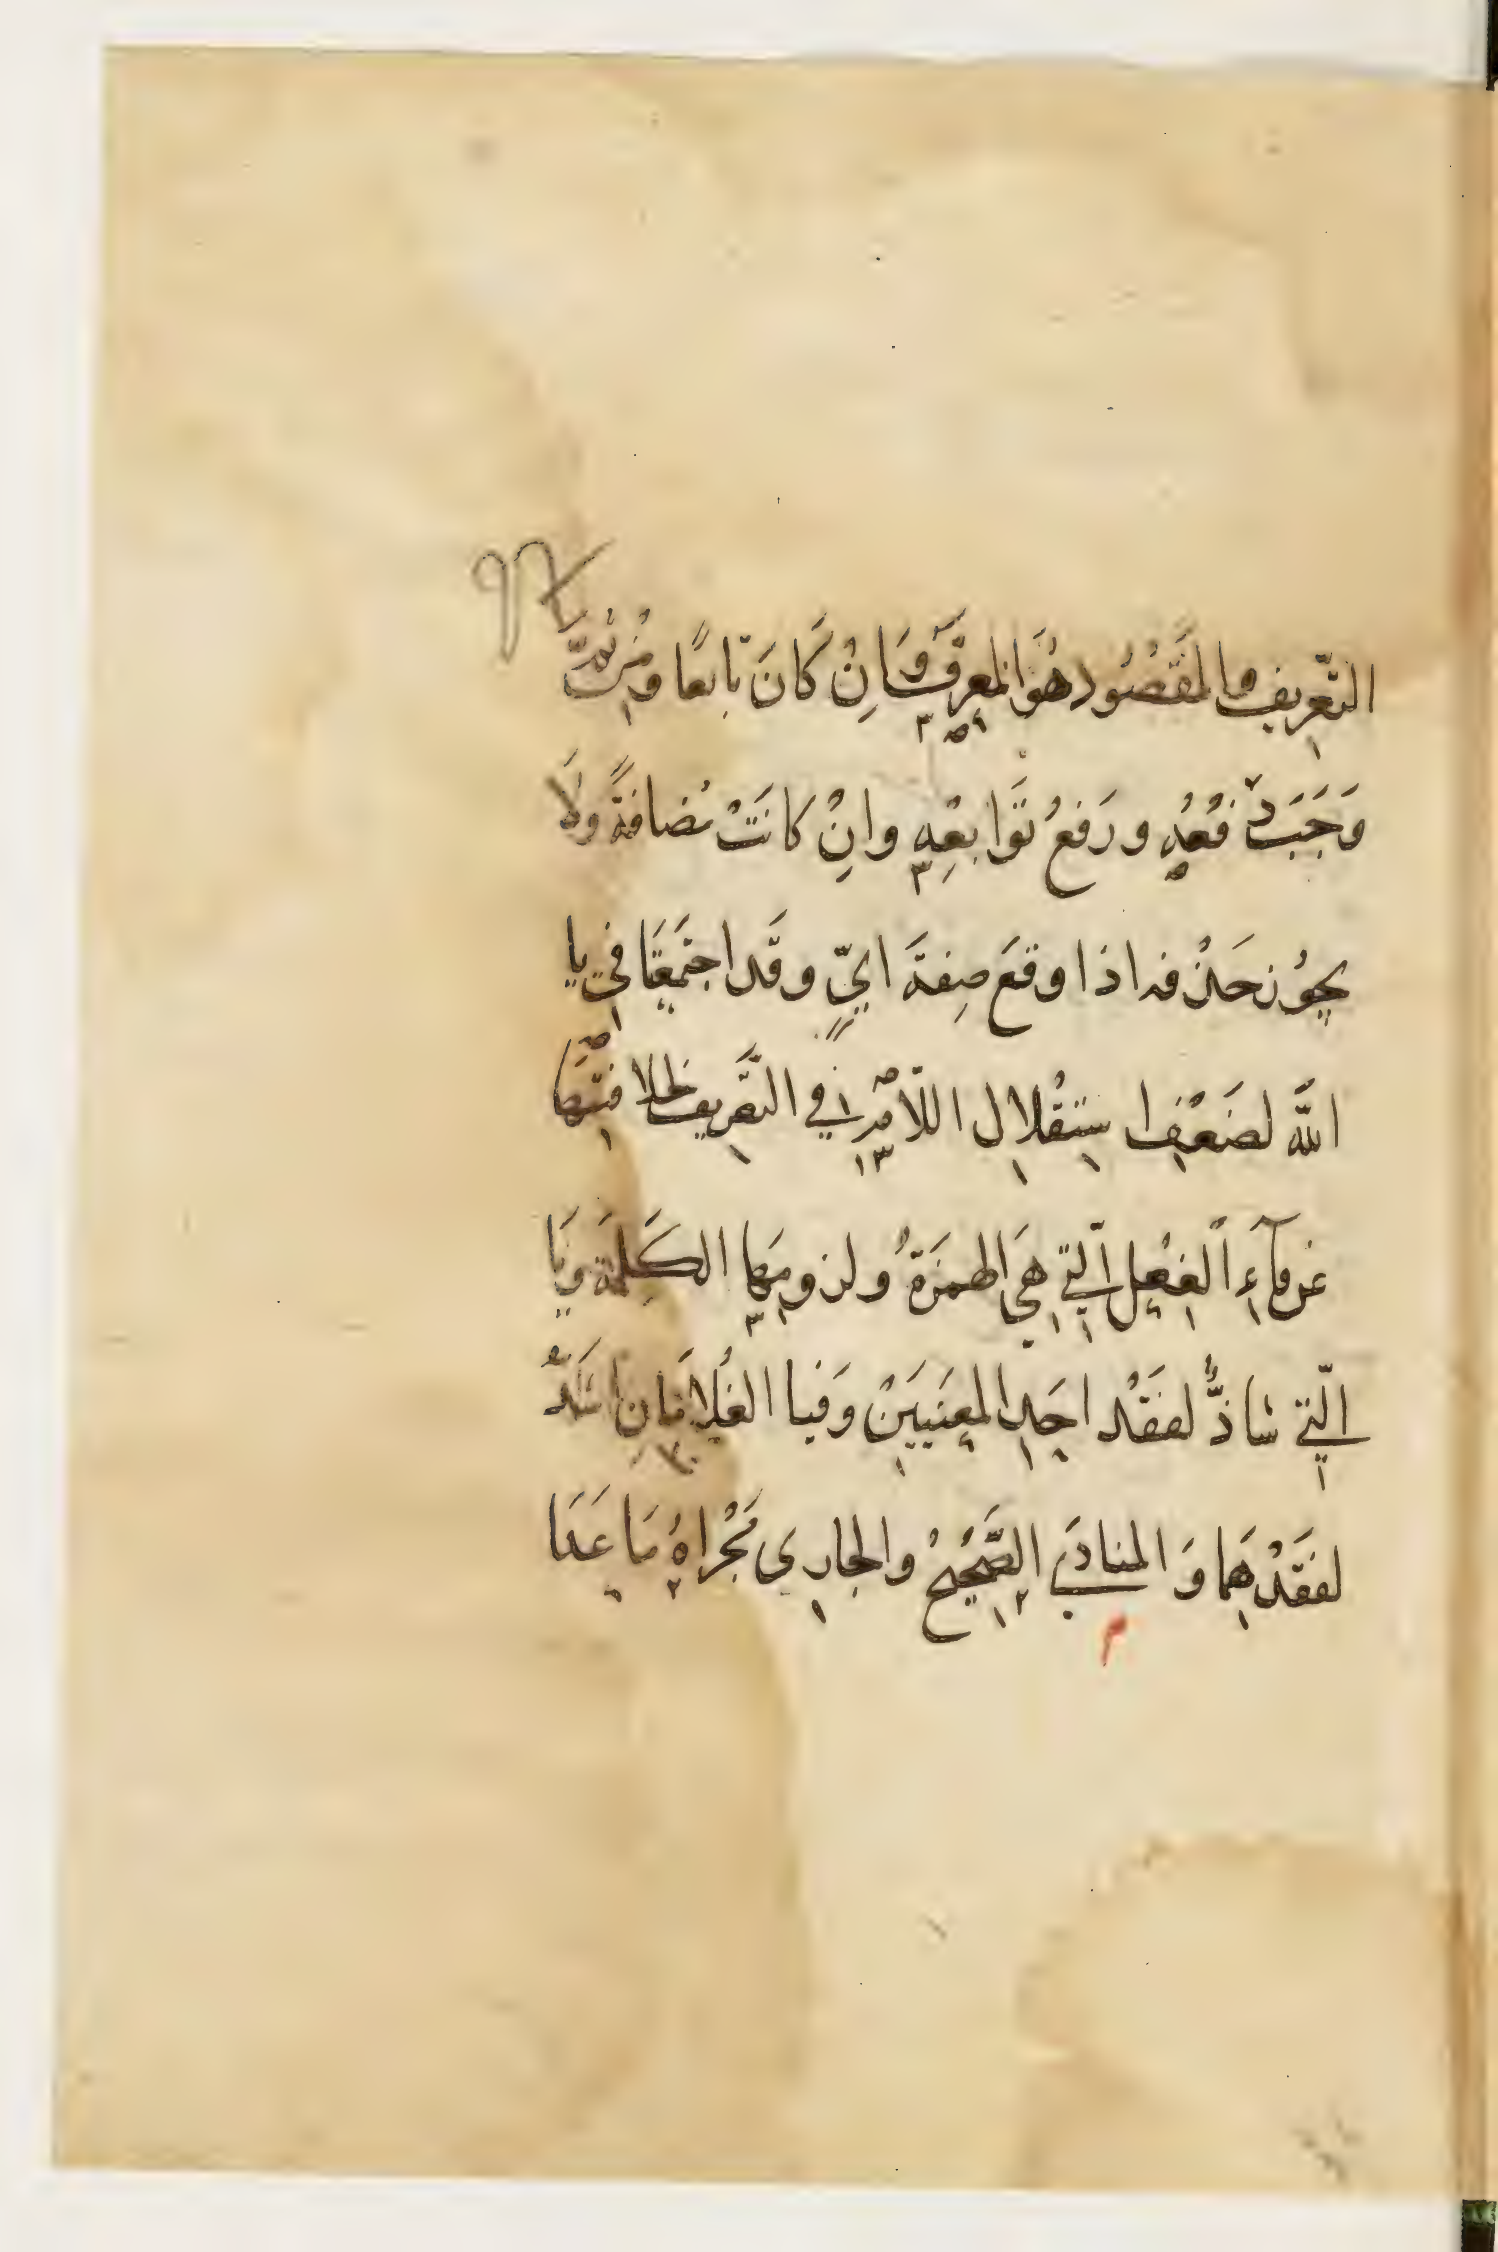 التّعريف والمقصُود هُوَ المعرّف وَاِنْ كَانَ تابعًا ومِنْ ثمّ
وَجَبَ رفْعُه ورَفعُ تَوابعْهِ وانْ كانَتْ مُضافةً ولَا
يجوُز حَذْفه اذا وقعَ صِفةَ ايٍّ وقَد اجتَمَعَا في يا
اللّه لضَعْفِ استقْلال اللّامِ في التّعريف لخلافتِهَا
عن فآءِ الفِعْل الّتي هَي الهمزَةُ ولزومِهَا الكَلِمَة ويَا
الّتي شاذٌّ لفَقْد احَدِ المعنَيَيَنْ وَفيا الغُلامَان اشَذُّ
لفَقْدهِمَا وَالمنادَى الصَّحِيْحُ والجاري مَجْراهُ مَا عَدَا